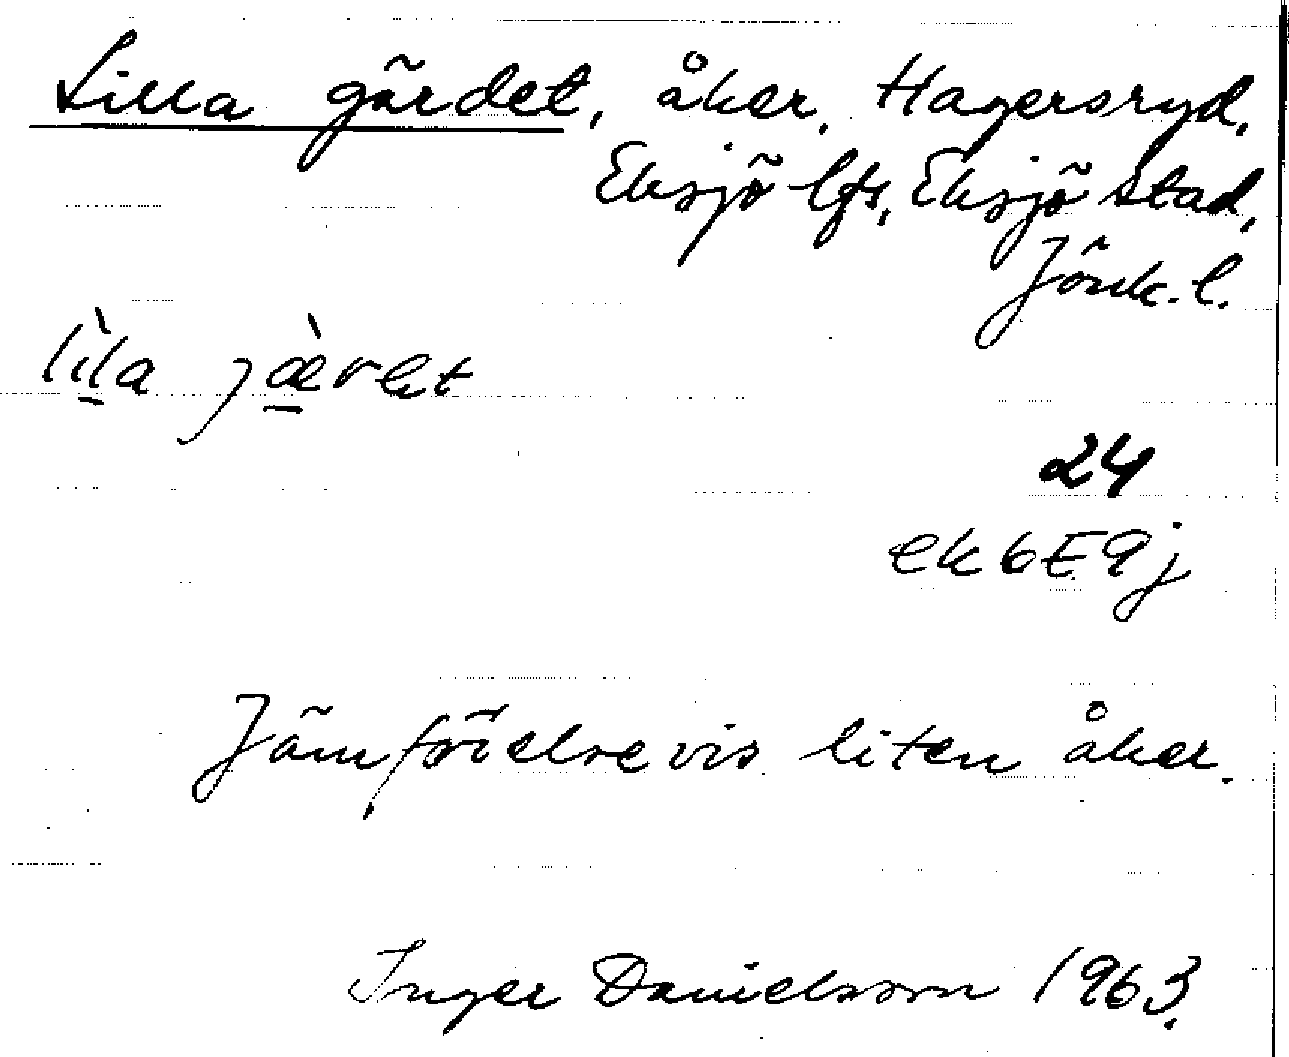 Lilla gärdet, åker, Hagersryd,
Eksjö lfs, Eksjö stad,
Jönk. l.
lìla jæ̀ret
24
ek 6E9j
Jämförelsevis liten åker.
Inger Danielsson 1963.